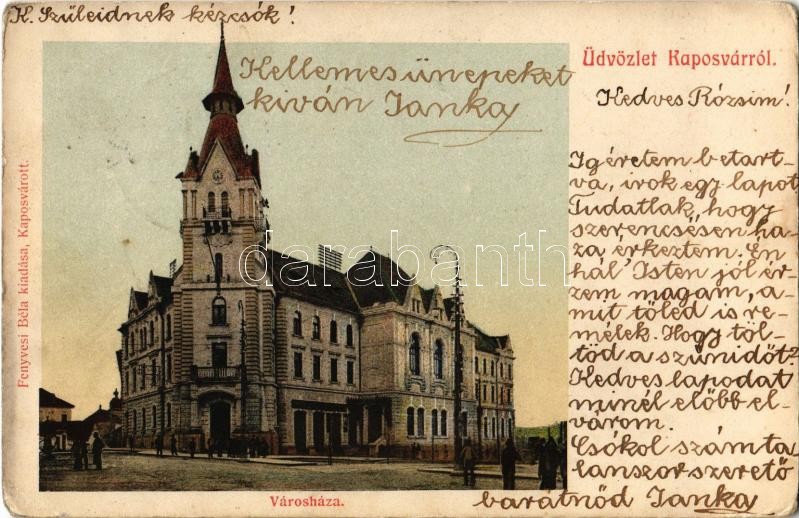 K. Szüleidnek kézcsók!
Kellemes ünnepeket
kiván Janka
Üdvözlet Kaposvárról.
Kedves Rózsim!
Igéretem betart-
va, irok egy lapot.
Tudatlak, hogy
szerencsésen ha-
za érkeztem. Én
hál' Isten jól ér-
zem magam, a-
mit töled is re-
mélek. Hogy töl-
töd a szünidöt?
Kedves lapodat
minél elöbb el-
várom.
Csókol számta-
lanszor szeretö
barátnöd Janka
Fenyvesi Béla kiadása, Kaposvárott.
darabanth.com
Városháza.